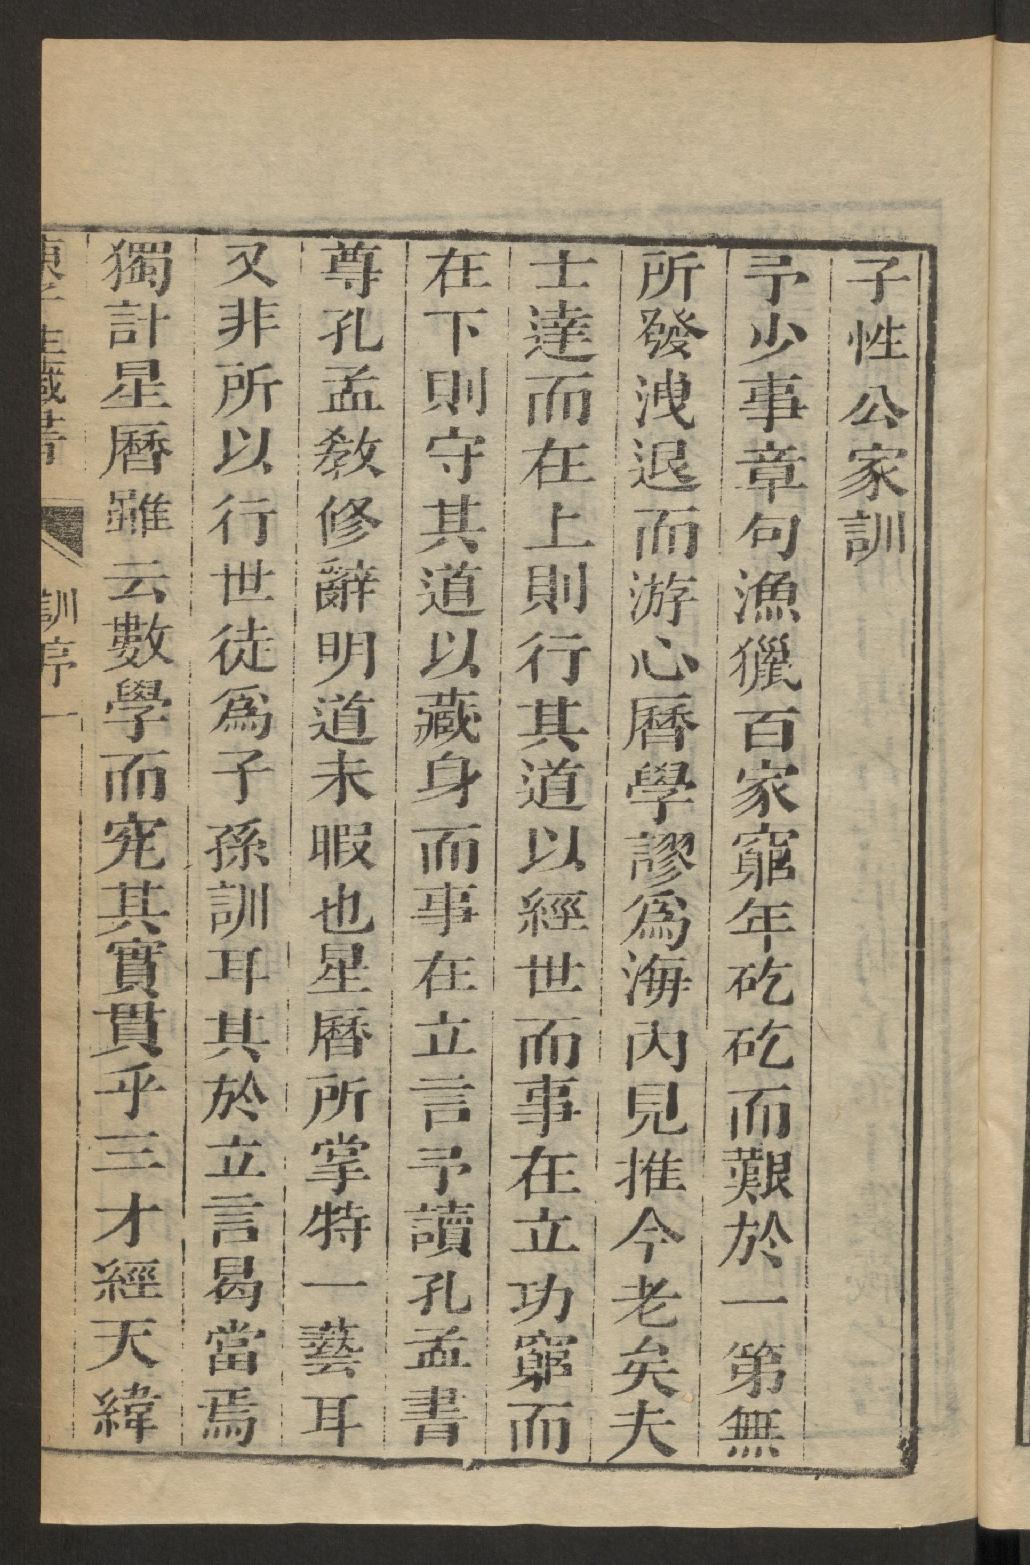 子性公家訓
予少事章句漁獵百家窮年矻矻而艱於一第無
所發洩退而游心曆學謬爲海內見推今老矣夫
士達而在上則行其道以經世而事在立功窮而
在下則守其道以藏身而事在立言予讀孔孟書
尊孔孟敎修辭明道未暇也星曆所掌特一藝耳
又非所以行世徒爲子孫訓耳其於立言曷當焉
獨計星曆雖云數學而究其實貫乎三才經天緯
訓序 一